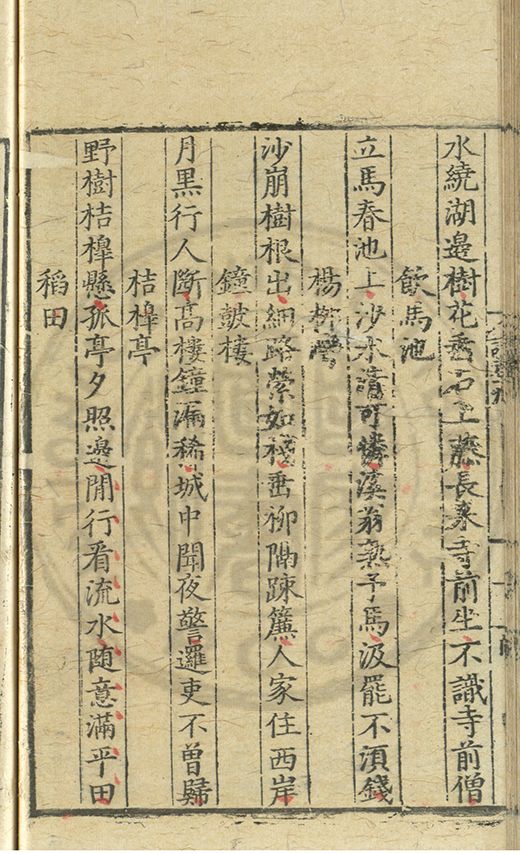 水繞湖邊樹花垂石上藤長來寺前坐不識寺前僧
飲馬池
立馬春池上沙水清可憐溪翁予馬汲罷不湏錢
楊柳
沙崩樹根出細路縈如棧垂柳隔疎簾人家住西岸
鐘皷樓
月黑行人斷高樓鐘漏稀城中聞夜警邏吏不曾歸
桔橰亭
野樹桔橰懸孤亭夕照邊閒行看流水随意滿平田
稻田